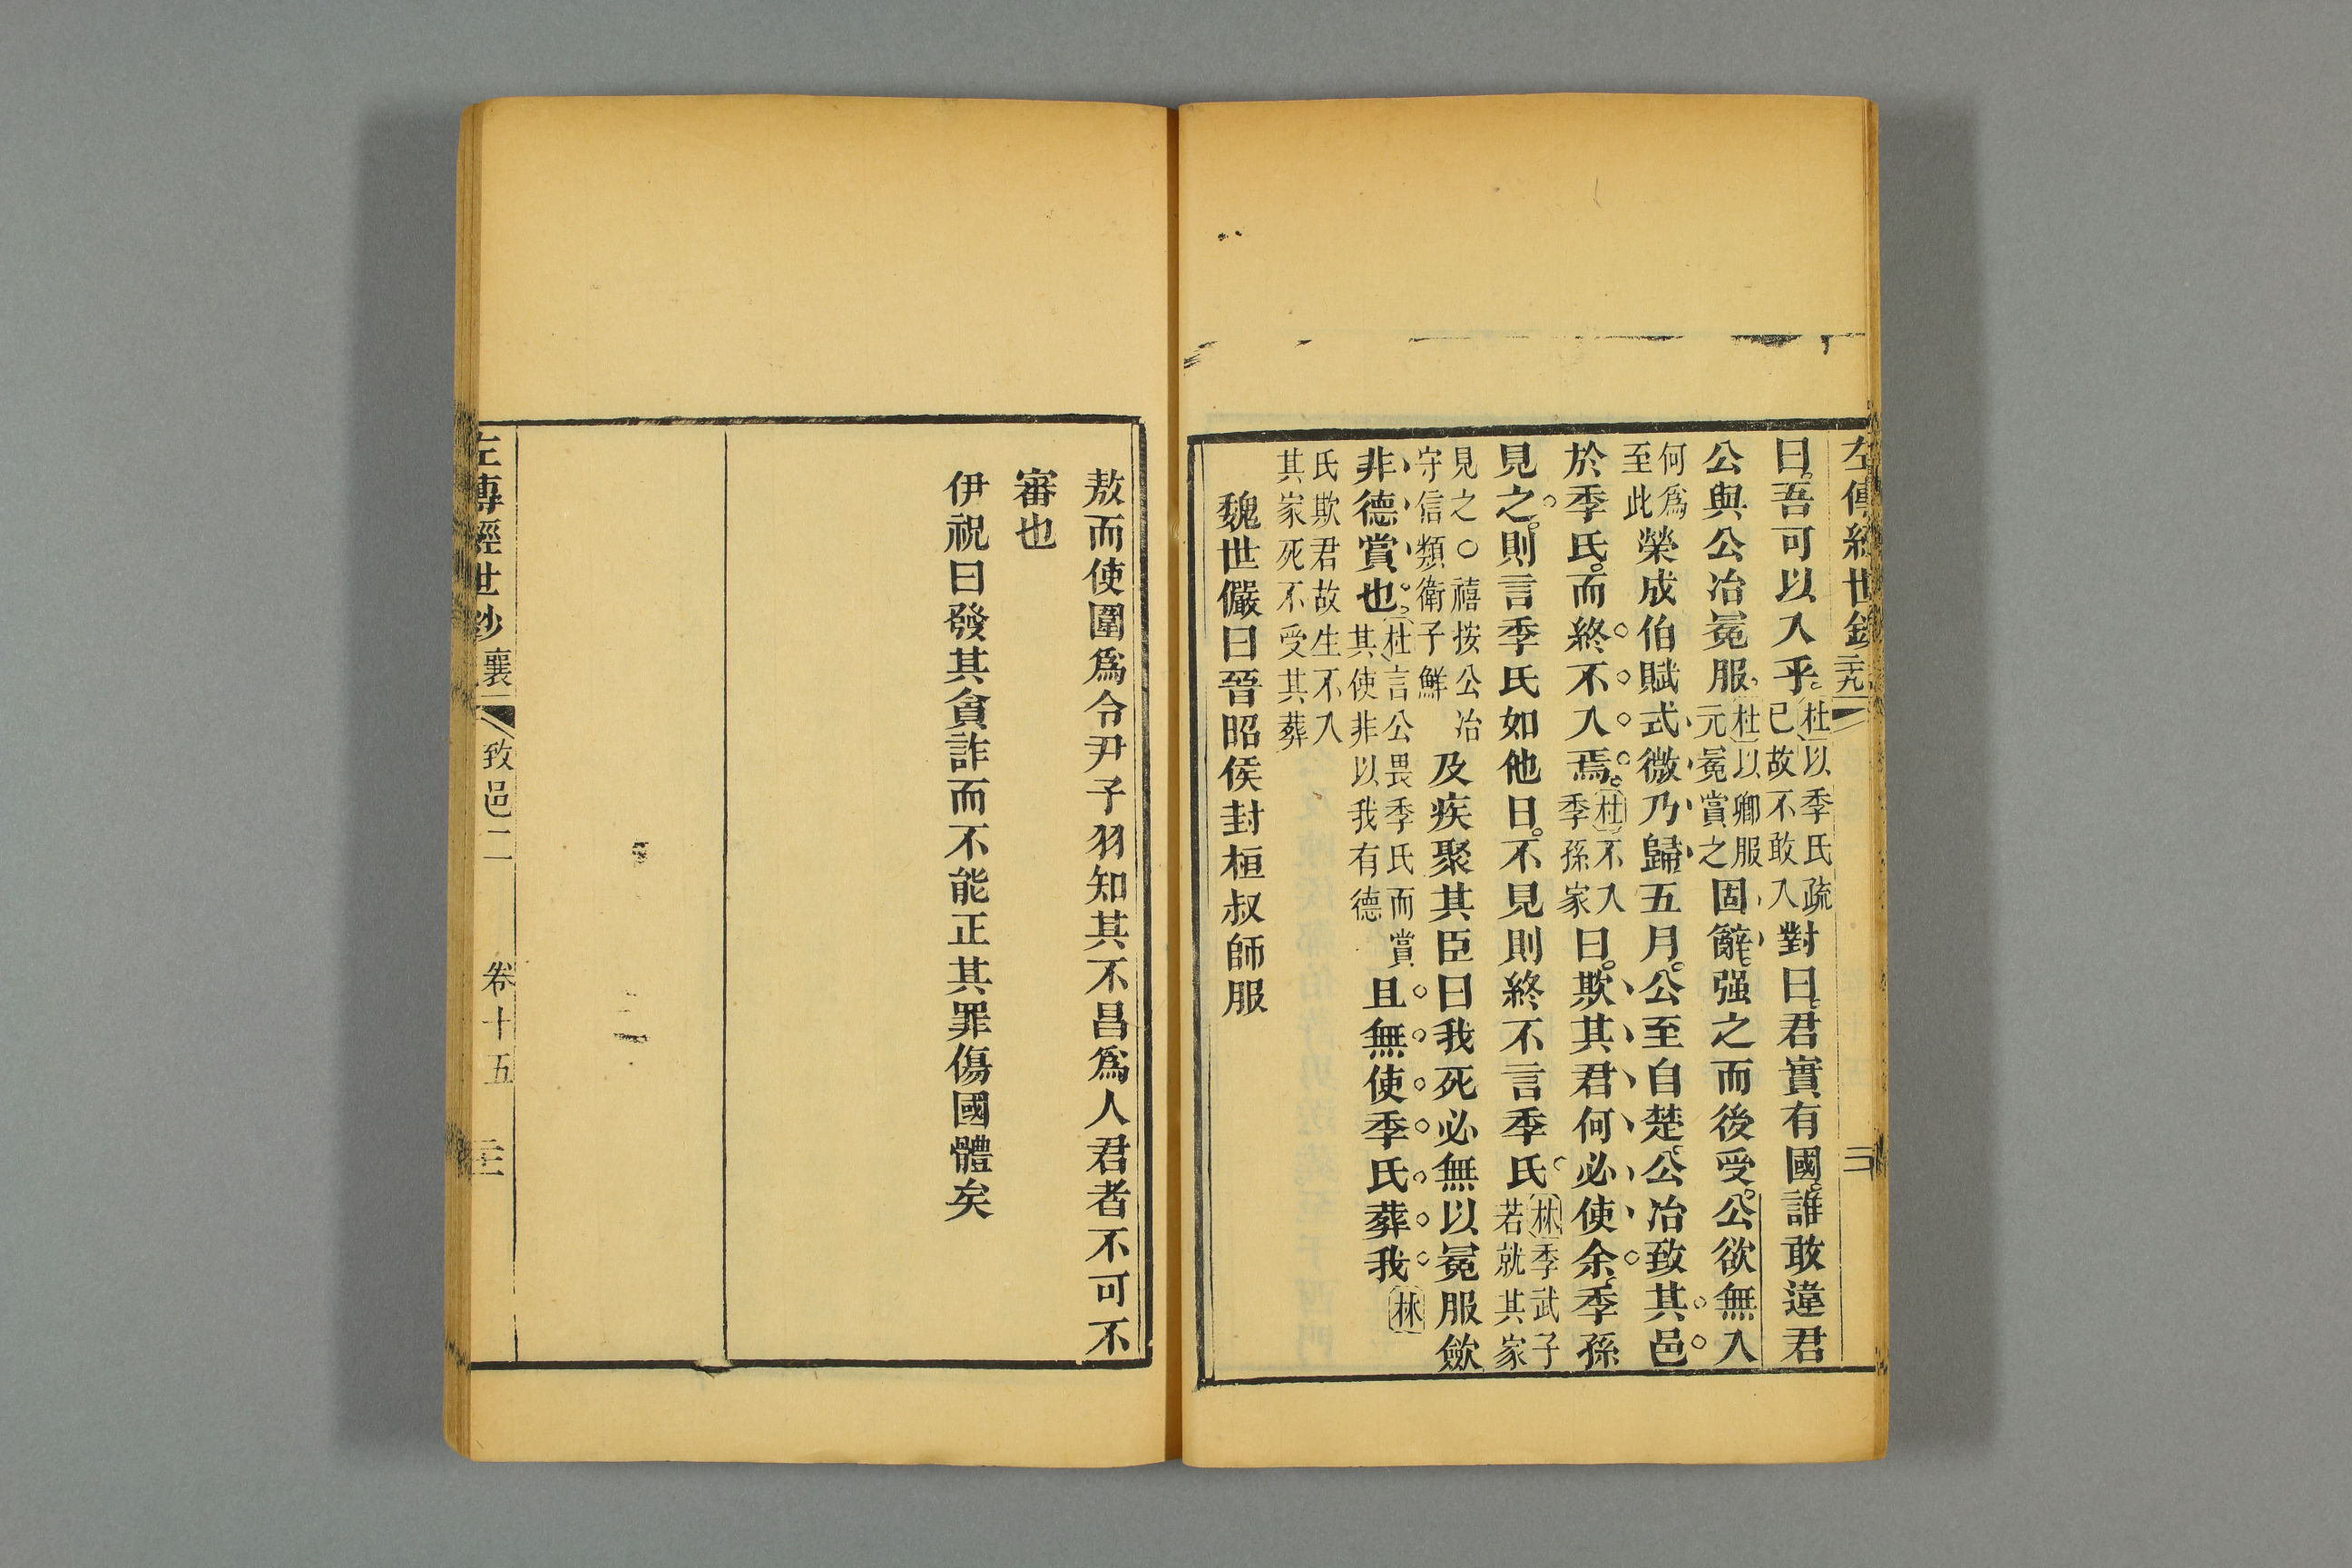 左傳經世鈔
二十九
三
曰吾可以入乎杜以季氏疏己故不敢入對曰君實有國誰敢違君
公與公冶冕服杜以卿服元冕賞之固辭强之而後受公欲無入
何爲至此榮成伯賦式微乃歸五月公至自楚公冶致其邑
於季氏而終不入焉杜不入季孫家曰欺其君何必使余季孫
見之則言季氏如他日不見則終不言季氏林季武子若就其家
見之○禧按公冶守信類衛子鮮及疾聚其臣曰我死必無以冕服斂
非德賞也杜言公畏季氏而賞其使非以我有德且無使季氏葬我林
氏欺君故生不入其家死不受其葬
魏世儼曰晉昭侯封桓叔師服
敖而使圍爲令尹子羽知其不昌爲人君者不可不
審也
伊祝曰發其貪詐而不能正其罪傷國體矣
左傳經世鈔
襄
致邑二
卷十五